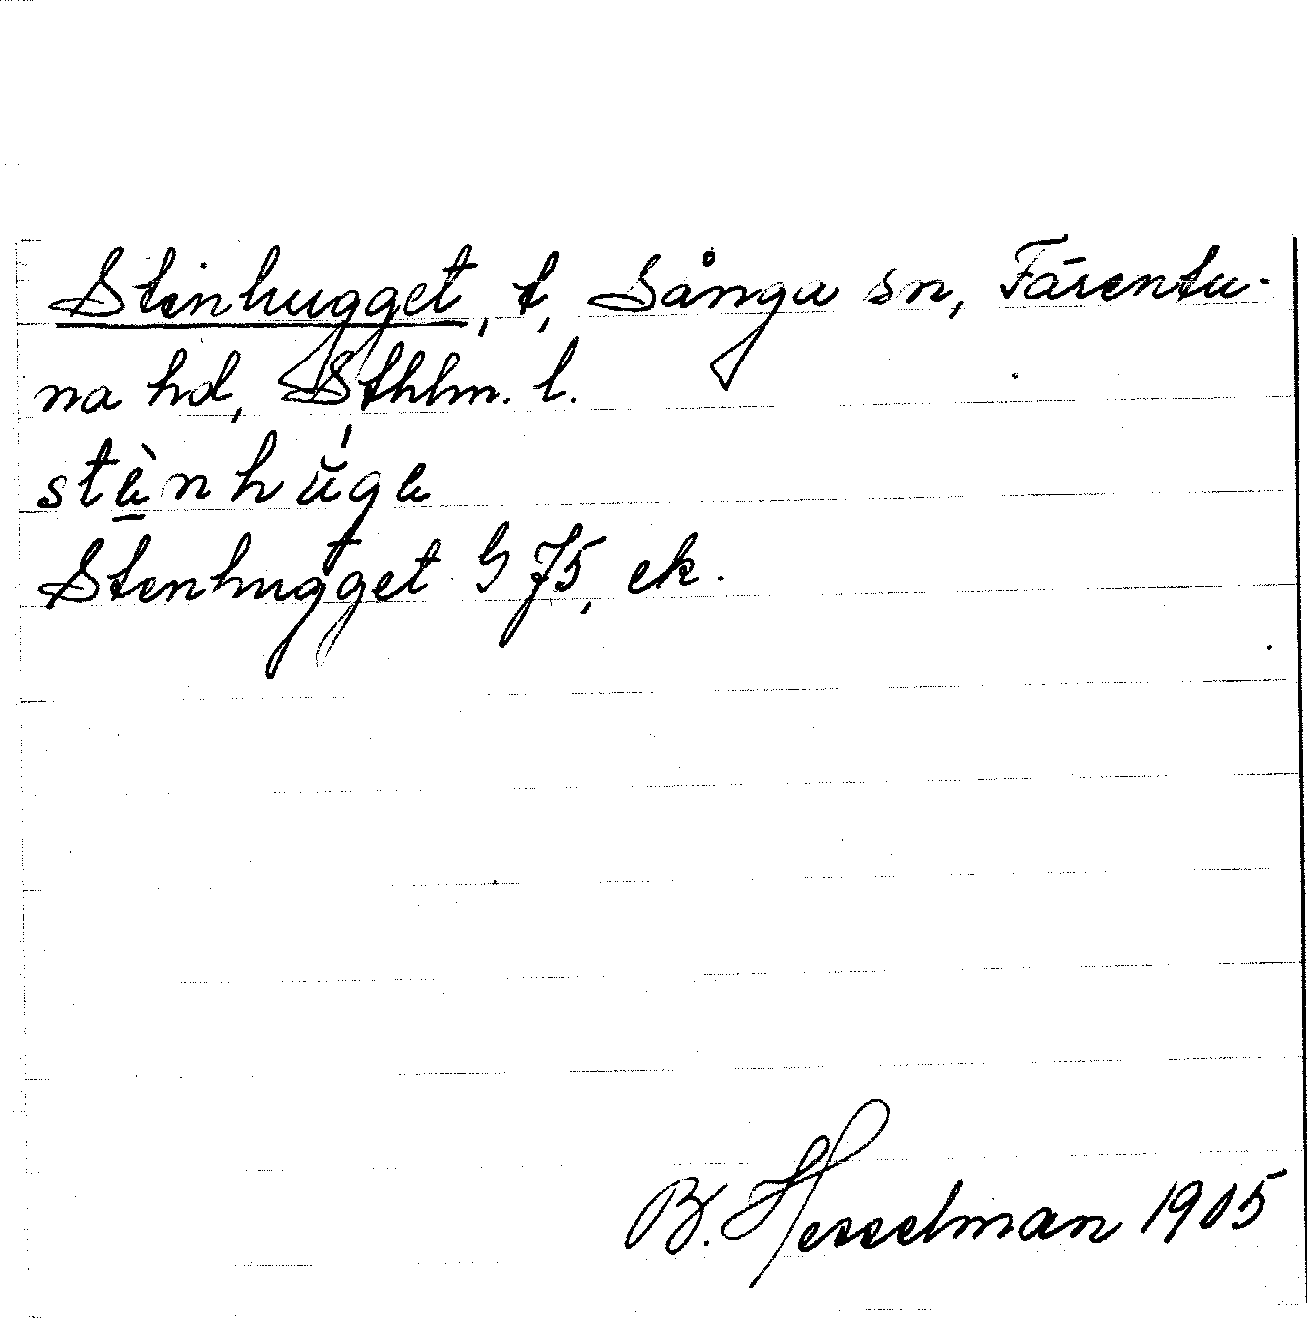 Stenhugget, t, Sånga sn, Färentu-
na hd, Sthlm. l.
stè̱nhŭ́ga
Stenhugget G 75, ek.
B. Hesselman 1905